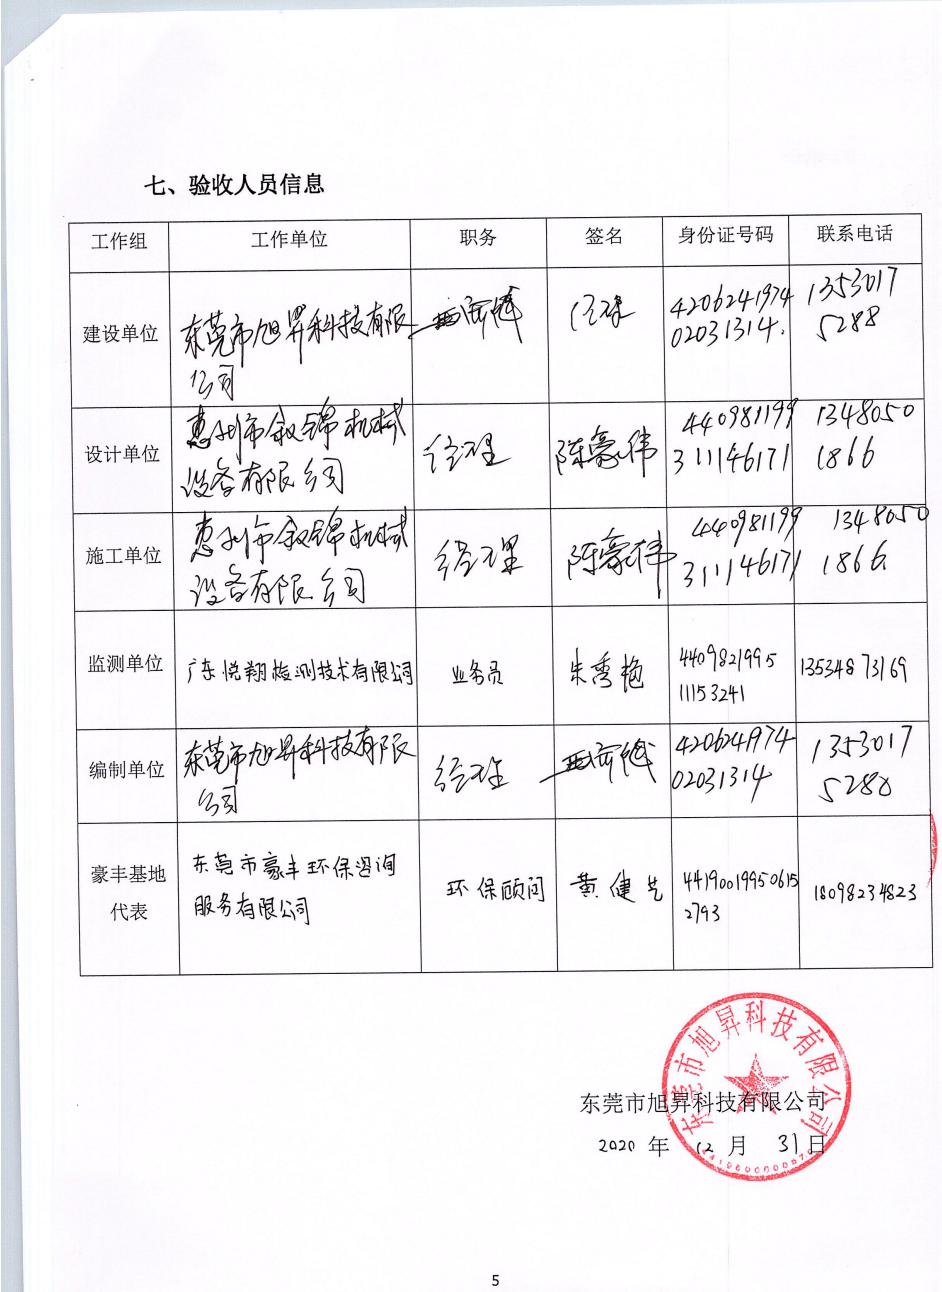 七、验收人员信息
工作组 工作单位 职务 签名 身份证号码 联系电话
建设单位 东莞市旭昇科技有限 经理 4206241974 1353017
公司 02031314. 5288
设计单位 惠州市叙锦机械 经理 陈豪伟 440981199 1348050
设备有限公司 311146171 1866
施工单位 惠州市叙锦机械 经理 陈豪伟 440981199 1348050
设备有限公司 311146171 1866
监测单位 广东悦翔检测技术有限公司 业务员 朱秀艳 4409821995 13534873169
11153241
编制单位 东莞市旭昇科技有限 经理 4206241974 1353017
公司 02031314 5288
豪丰基地 东莞市豪丰环保咨询 环保顾问 黄健 44190019950615 18098234823
代表 服务有限公司 2793
东莞市旭昇科技有限公司
东莞市旭昇科技有限公司
2020 年 12 月 31 日
5